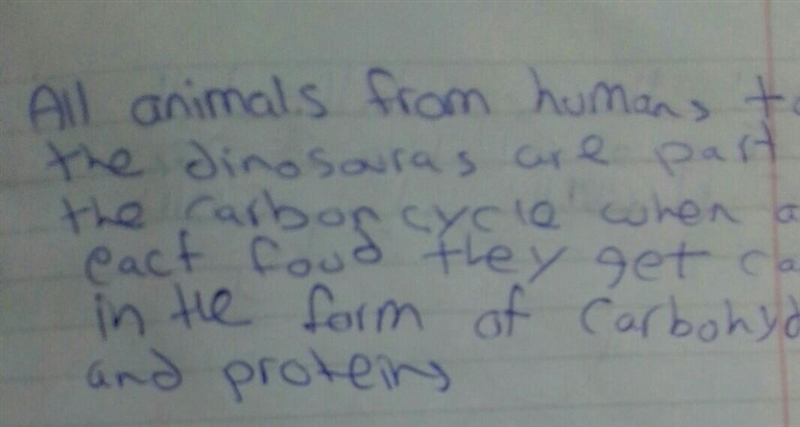 All animals from humans to
the dinosauras are part
the carbon cycle when a
eact food they get ca
in the form of Carbohyd
and proteins